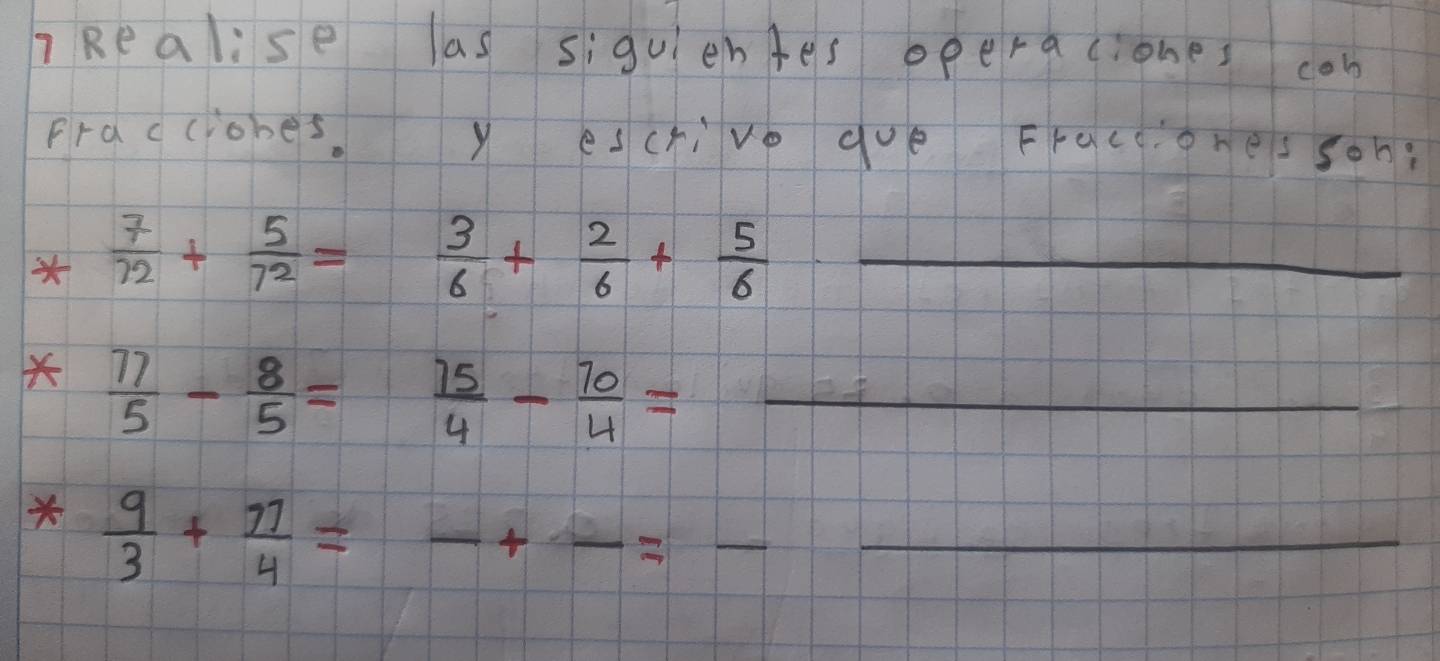 1 Realise las siguientes operaciones con
Fracciones. y escrivo que Fracciones son:
* 7/12 + 5/12 = 3/6 + 2/6 + 5/6 ____
* 11/5 - 8/5 = 15/4 - 10/4 = ____
* 9/3 + 11/4 = — + — = — ____